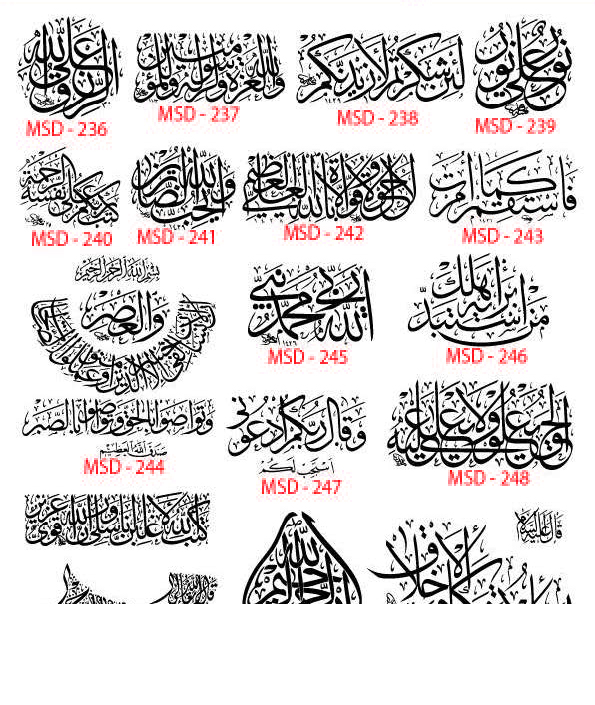 MSD - 236
ولله العزة ولرسوله وللمؤمنين
MSD - 237
لئن شكرتم لأزيدنكم
MSD - 238
نور على نور
MSD - 239
كتب ربكم على نفسه الرحمة
MSD - 240
والله يحب الصابرين
MSD - 241
لا حول ولا قوة إلا بالله العلي العظيم
MSD - 242
فاستقم كما أمرت
MSD - 243
بسم الله الرحمن الرحيم
والعصر
إن الإنسان لفي خسر إلا الذين آمنوا وعملوا الصالحات
وتواصوا بالحق وتواصوا بالصبر
صدق الله العظيم
MSD - 244
الله ربي محمد نبيي
MSD - 245
من استبد برأيه هلك
MSD - 246
وقال ربكم ادعوني
أستجب لكم
MSD - 247
الحق يعلو ولا يعلى عليه
MSD - 248
كتب الله لأغلبن أنا ورسلي إن الله قوي عزيز
قال عليه السلام